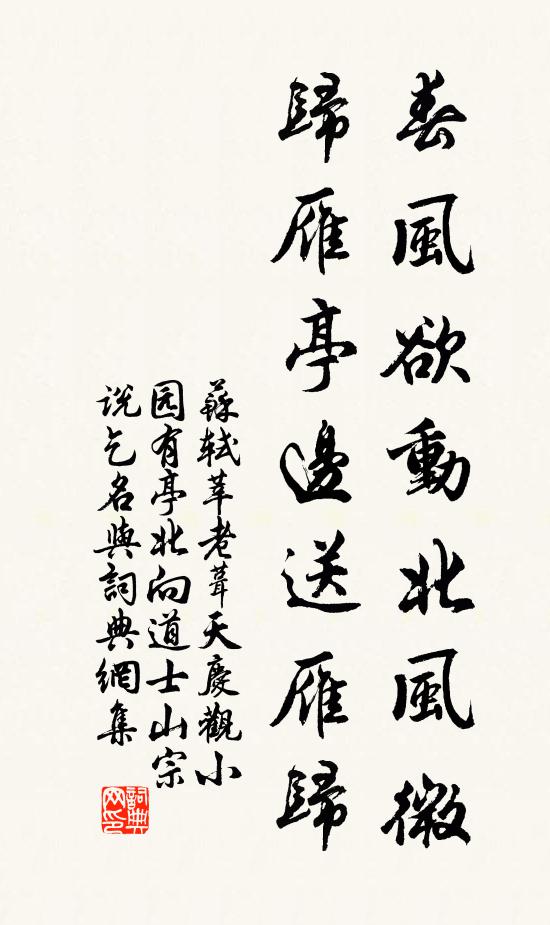 春風欲動北風微
歸雁亭邊送雁歸
蘇軾莘老葺天慶觀小
园有亭北向道士山宗
说乞名與詞典網集
詞典网印